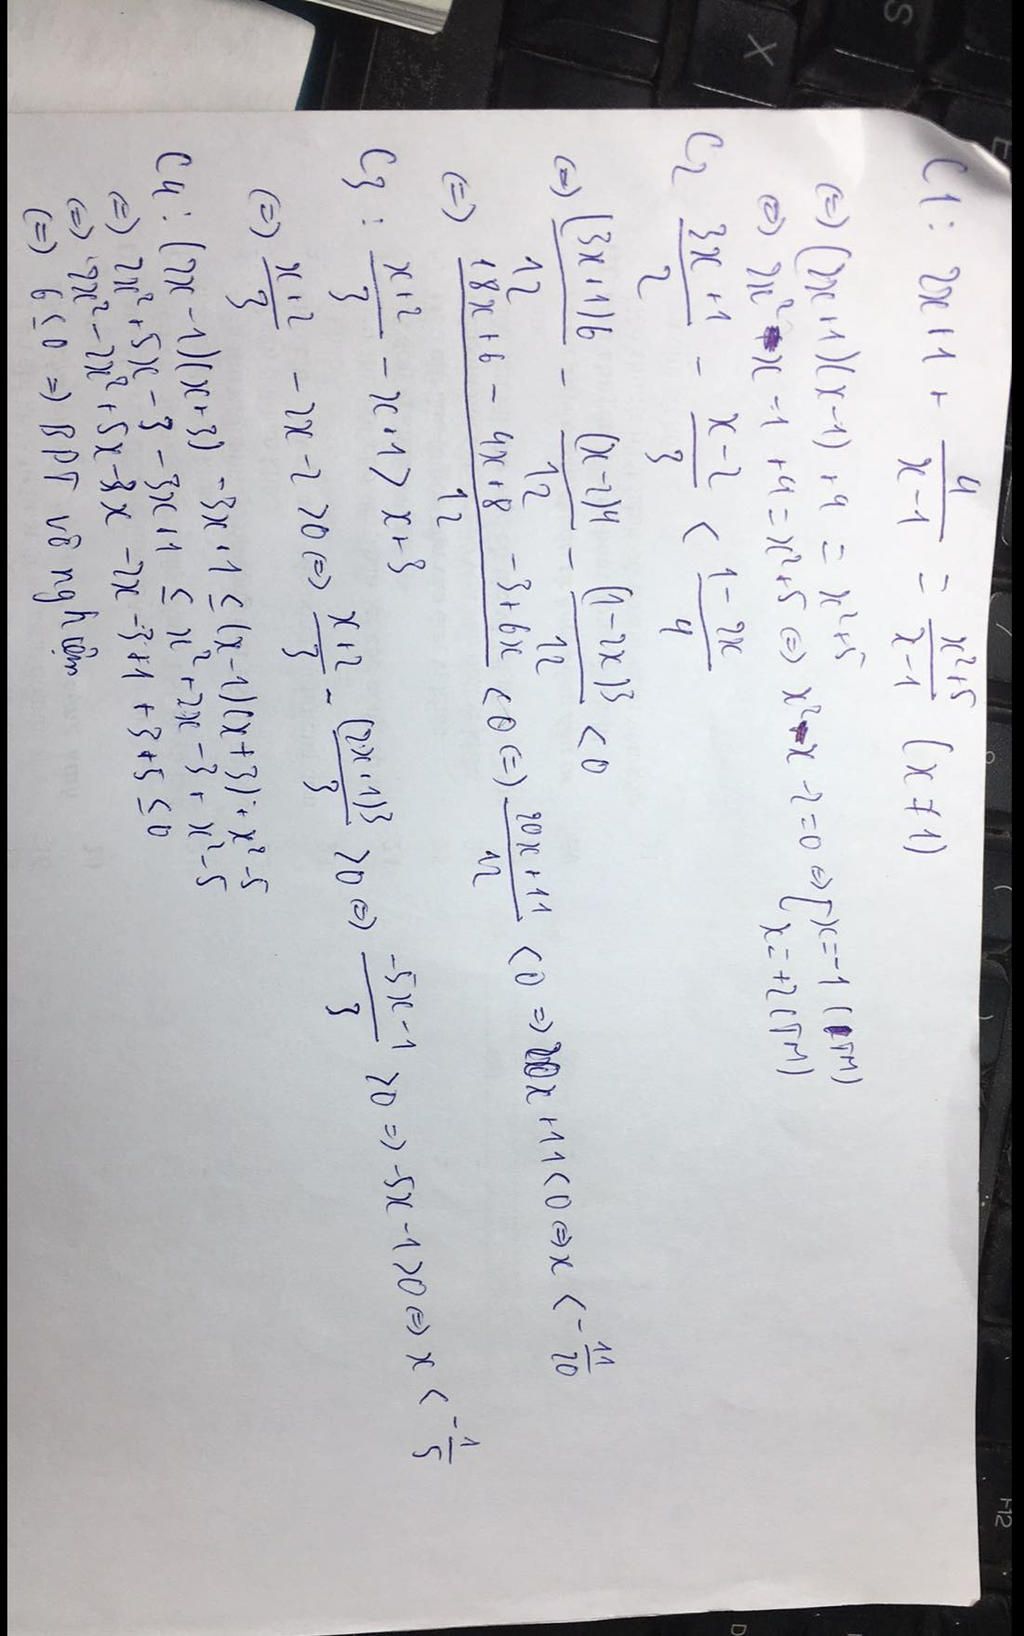 C1: 2x+1 + 4/(x-1) = (x²+5)/(x-1) (x≠1)
(=) (2x+1)(x-1) +4 = x²+5
⇔ 2x² - x -1 +4 = x²+5 ⇔ x² - x -2=0 ⇔ [x=-1 (TM)
x=+2 (TM)
C2 (3x+1)/2 - (x-2)/3 < (1-2x)/4
(=) (3x+1)6/12 - (x-2)4/12 - (1-2x)3/12 < 0
(=) (18x+6 - 4x+8 -3+6x)/12 <0 (=) (20x+11)/12 <0 => 20x +11<0 ⇔ x < -11/20
C3: (x+2)/3 - x+1 > x+3
(=) (x+2)/3 - 2x-2 >0 ⇔ (x+2)/3 - (2x+1)3/3 >0 ⇔ (-5x-1)/3 >0 => -5x-1>0 ⇔ x < -1/5
C4: (2x-1)(x+3) -3x+1 ≤ (x-1)(x+3) + x²-5
(=) 2x²+5x-3 -3x+1 ≤ x²+2x-3+x²-5
(=) 2x²-2x²+5x-3x -2x -3+1+3+5 ≤0
(=) 6 ≤0 => BPT vô nghiệm
S
X
E
D